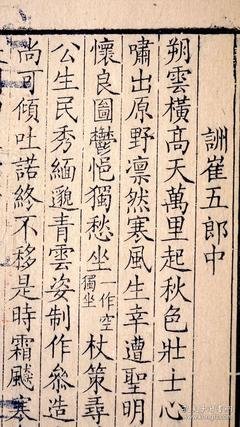 詶崔五郎中
朔雲橫高天萬里起秋色壯士心
嘯出原野凛然寒風生幸遭聖明
懷良圖鬱悒獨愁坐一作空獨坐杖策尋
公生民秀緬邈青雲姿制作叅造
尚可傾吐諾終不移是時霜飈寒